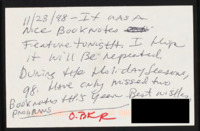 11/23/98 - It was a
Nice Booknotes
Feature tonight. I hope
it will be repeated
During the Holiday Season,
98. Have only missed two
Booknotes this year. Best wishes
programs
O.BKR